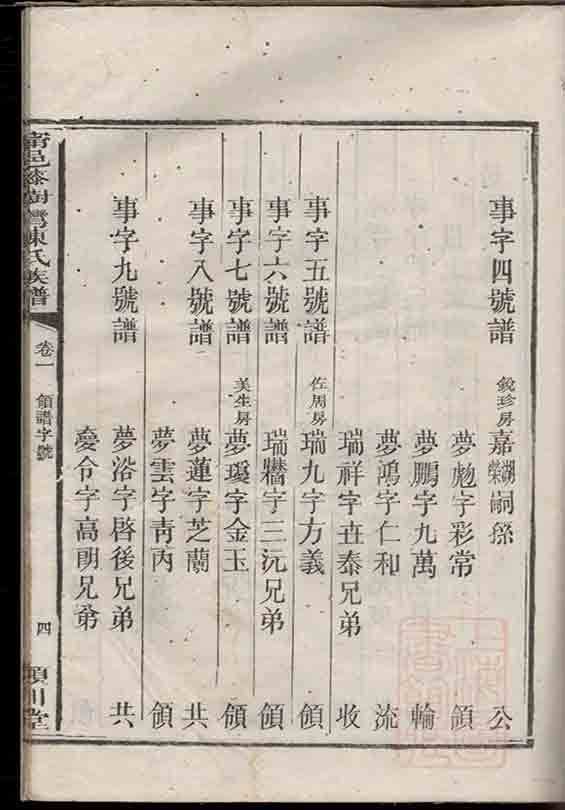 事字四號譜 銳珍房 嘉 嗣孫 公
夢 字彩常 領
夢鵬字九萬 輪
夢鴻字仁和 流
瑞祥字世泰兄弟 收
事字五號譜 佐周房 瑞九字方義 領
事字六號譜 瑞 字三沅兄弟 領
事字七號譜 美生房 夢瑗字金玉 領
事字八號譜 夢蓮字芝蘭 共
夢雲字青丙 領
事字九號譜 夢浴字啓後兄弟 共
慶令字高朗兄弟
甯邑漆樹灣陳氏族譜 卷一 領譜字號 四 潁川堂